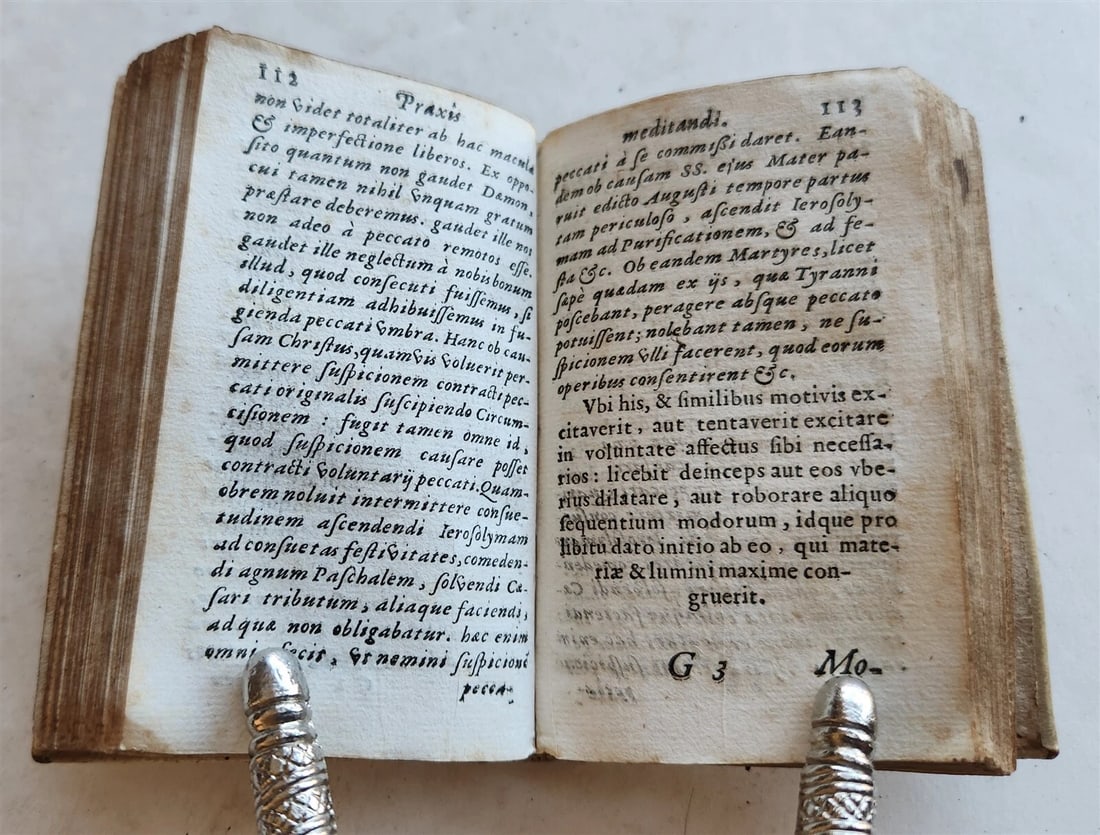 112
Praxis
non videt totaliter ab hac macula
& imperfectione liberos. Ex oppo-
sito quantum non gaudet Dæmon,
cui tamen nihil vnquam gratum
præstare deberemus. gaudet ille nos
non adeò à peccato remotos esse.
gaudet ille neglectum à nobis bonum
illud, quod consecuti fuissemus, si
diligentiam adhibuissemus in fu-
gienda peccati vmbra. Hanc ob cau-
sam Christus, quamvis voluerit per-
mittere suspicionem contracti pec-
cati originalis suscipiendo Circum-
cisionem : fugit tamen omne id,
quod suspicionem causare posset
contracti voluntarij peccati. Quam-
obrem noluit intermittere consue-
tudinem ascendendi Ierosolymam
ad consuetas festivitates, comeden-
di agnum Paschalem, solvendi Cæ-
sari tributum, aliaque faciendi,
ad quæ non obligabatur. hæc enim
omnia fecit, vt nemini suspicionē
pecca-
meditandi.
113
peccati à se commißi daret. Ean-
dem ob causam SS. ejus Mater pa-
ruit edicto Augusti tempore partus
tam periculoso, ascendit Ierosoly-
mam ad Purificationem, & ad fe-
sta &c. Ob eandem Martyres, licet
sæpè quædam ex ijs, quæ Tyranni
poscebant, peragere absque peccato
potuissent; nolebant tamen, ne su-
spicionem vlli facerent, quod eorum
operibus consentirent &c.
Vbi his, & similibus motivis ex-
citaverit, aut tentaverit excitare
in voluntate affectus sibi necessa-
rios: licebit deinceps aut eos vbe-
rius dilatare, aut roborare aliquo
sequentium modorum, idque pro
libitu dato initio ab eo, qui mate-
riæ & lumini maxime con-
gruerit.
G 3
Mo-